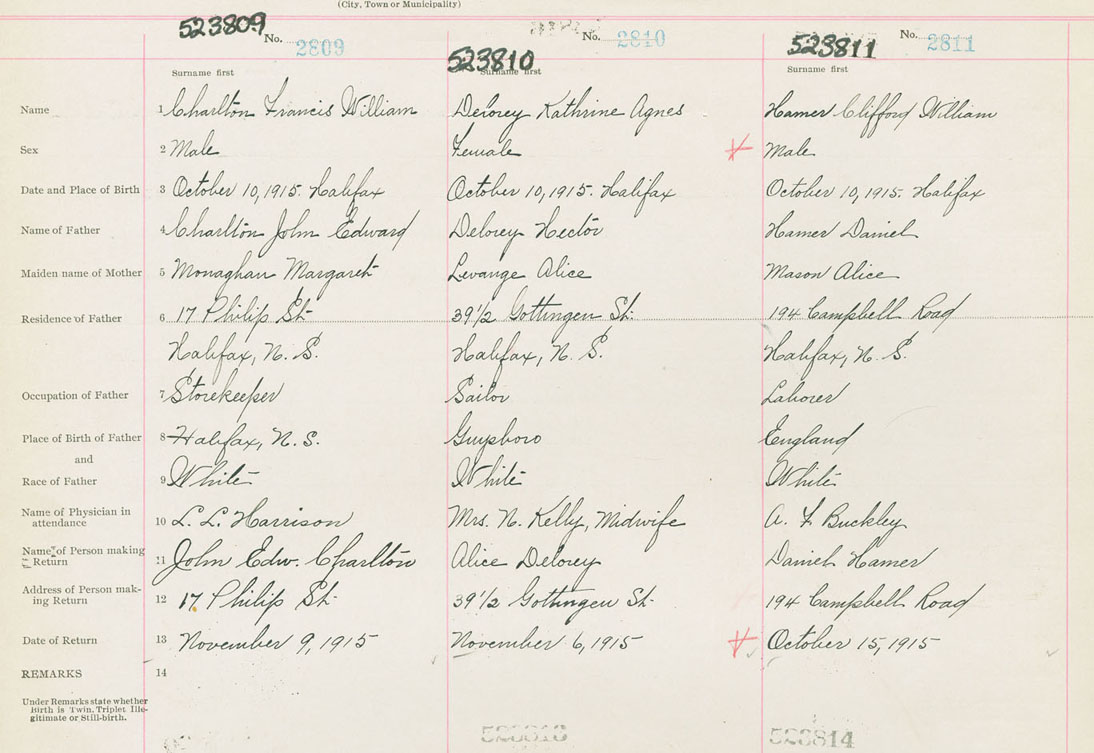 (City, Town or Municipality)
523809 No. 2809 523810 No. 2810 523811 No. 2811
Surname first Surname first Surname first
Name 1 Charlton Francis William Delorey Kathrine Agnes Hamer Clifford William
Sex 2 Male Female Male
Date and Place of Birth 3 October 10, 1915. Halifax October 10, 1915. Halifax October 10, 1915. Halifax
Name of Father 4 Charlton John Edward Delorey Hector Hamer Daniel
Maiden name of Mother 5 Monaghan Margaret Levange Alice Mason Alice
Residence of Father 6 17 Philip St. 39 1/2 Gottingen St. 194 Campbell Road
Halifax, N. S. Halifax, N. S. Halifax, N. S.
Occupation of Father 7 Storekeeper Sailor Laborer
Place of Birth of Father 8 Halifax, N. S. Guysboro England
and
Race of Father 9 White White White
Name of Physician in attendance 10 L. L. Harrison Mrs. N. Kelly, Midwife A. F Buckley
Name of Person making Return 11 John Edw. Charlton Alice Delorey Daniel Hamer
Address of Person making Return 12 17 Philip St. 39 1/2 Gottingen St. 194 Campbell Road
Date of Return 13 November 9, 1915 November 6, 1915 October 15, 1915
REMARKS 14
Under Remarks state whether
Birth is Twin, Triplet Ille-
gitimate or Still-birth.
523814